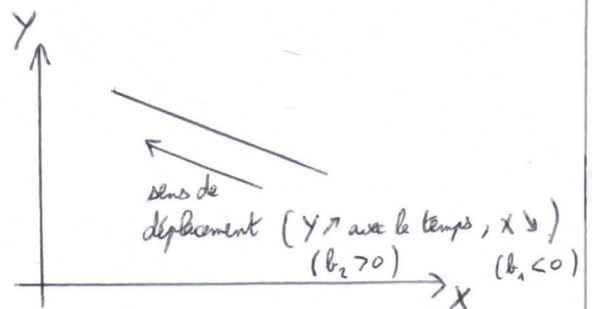 Y
sens de
déplacement (Y ↗ avec le temps, X ↘)
(b₂ > 0) (b₁ < 0)
X